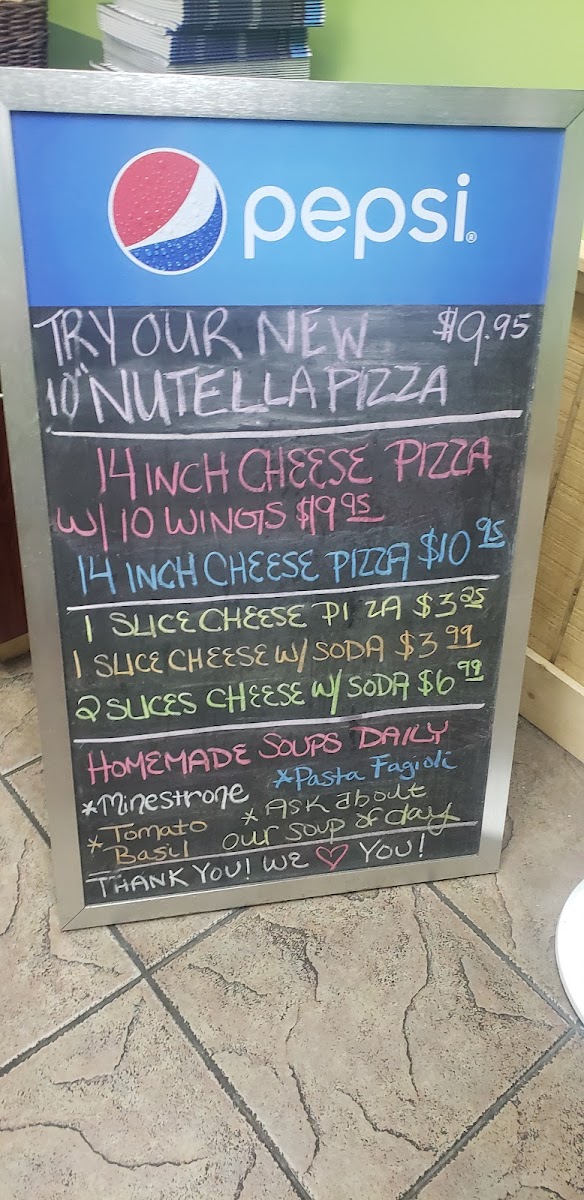 pepsi®
TRY OUR NEW $9.95
10" NUTELLA PIZZA
14 INCH CHEESE PIZZA
W/ 10 WINGS $19 95
14 INCH CHEESE PIZZA $10 95
1 SLICE CHEESE PI ZA $3 25
1 SLICE CHEESE W/ SODA $3 99
2 SLICES CHEESE W/ SODA $6 99
HOMEMADE SOUPS DAILY
*Minestrone *Pasta Fagioli
*Tomato Basil
*ASK about our soup of day
THANK YOU! WE ♡ YOU!